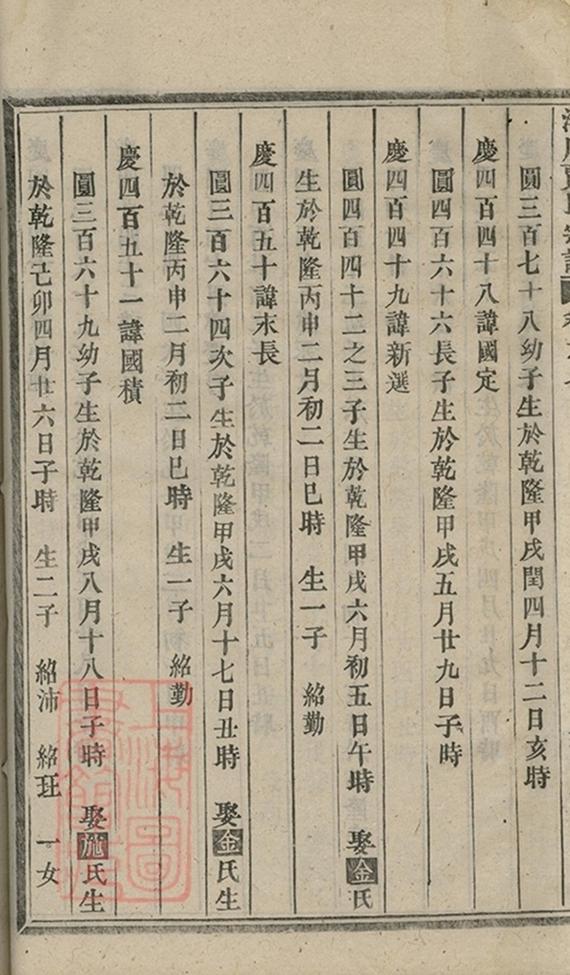 圓三百七十八幼子生於乾隆甲戌閏四月十二日亥時
慶四百四十八諱國定
圓四百六十六長子生於乾隆甲戌五月廿九日子時
慶四百四十九諱新選
圓四百四十二之三子生於乾隆甲戌六月初五日午時 娶金氏
生於乾隆丙申二月初二日巳時 生一子 紹勤
慶四百五十諱末長
圓三百六十四次子生於乾隆甲戌六月十七日丑時 娶金氏生
於乾隆丙申二月初二日巳時 生一子 紹勤
慶四百五十一諱國積
圓三百六十九幼子生於乾隆甲戌八月十八日子時 娶施氏生
於乾隆己卯四月廿六日子時 生二子 紹沛 紹玨 一女